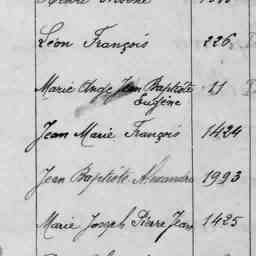 Léon François 226
Marie Ange Jean Baptiste 11
Eugène
Jean Marie François 1424
Jean Baptiste Alexandre 1993
Marie Joseph Pierre Jean 1425